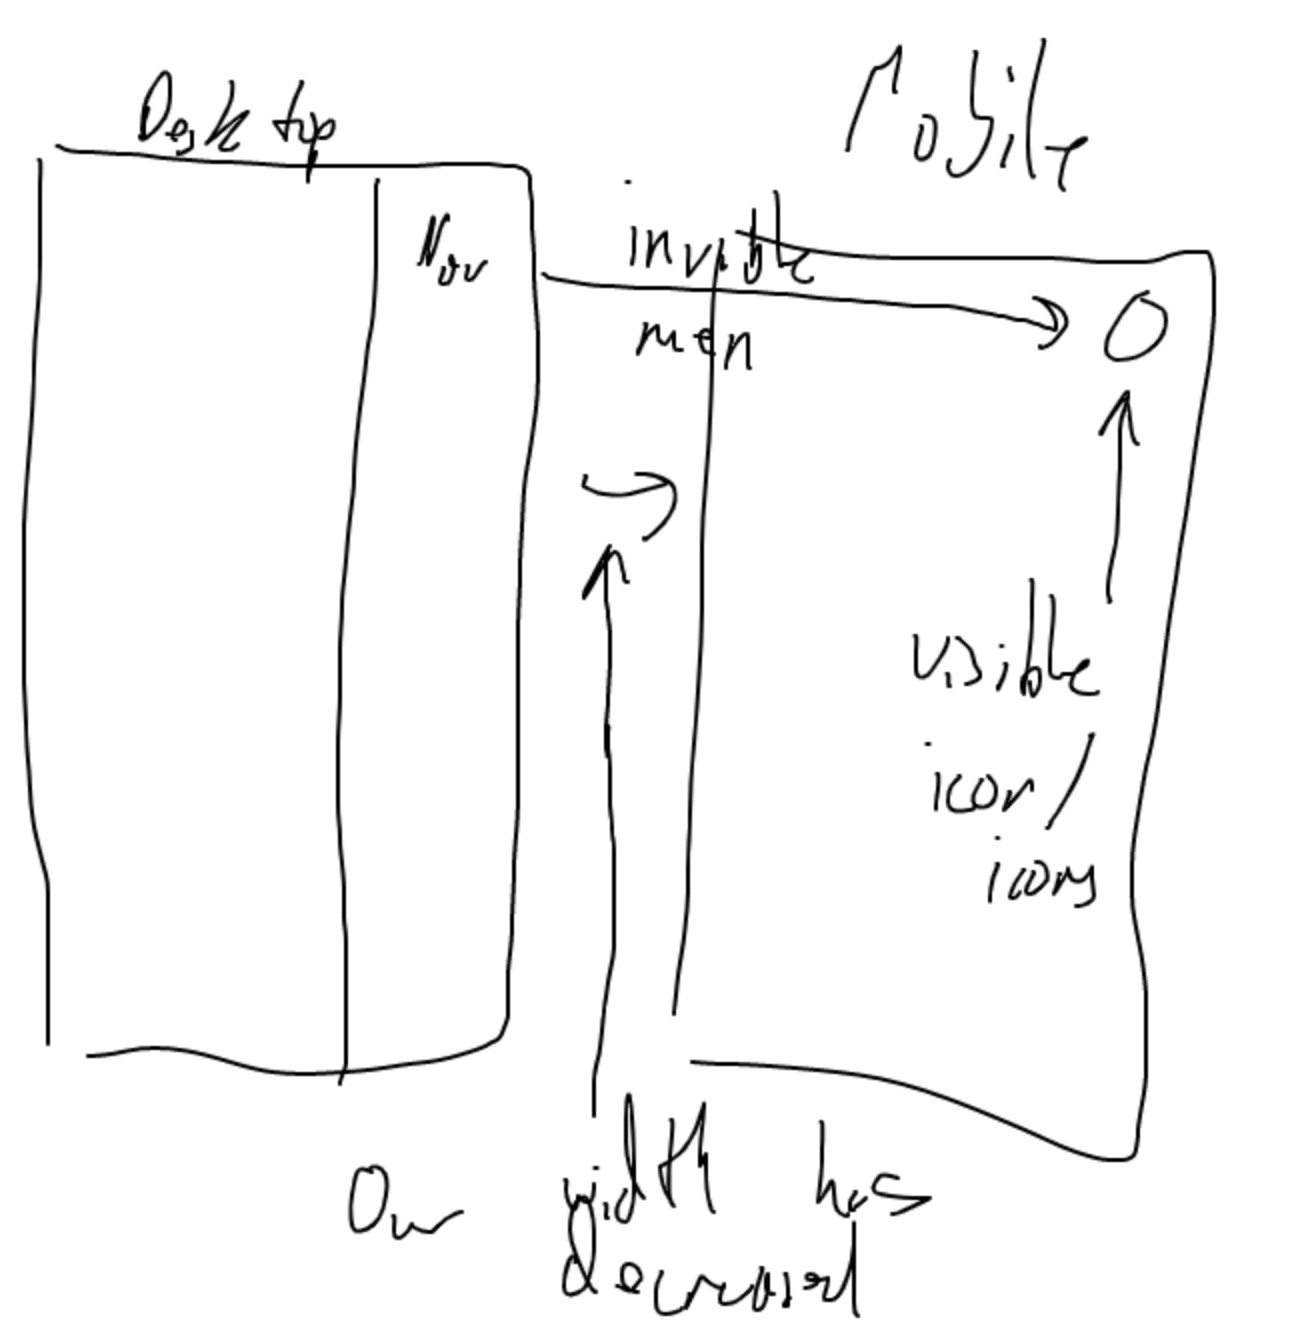 Desktop
Mobile
Nav
invisible
men
visible
icon/
icons
Our width has
decreased